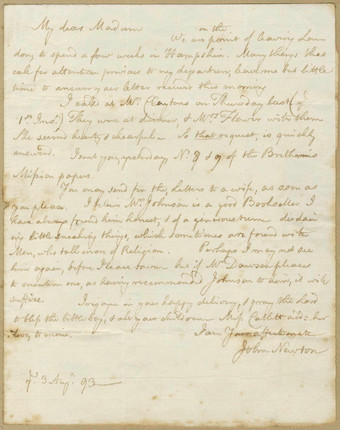 My dear Madam
on the
We are point of leaving Lon
don, to spend a few weeks in Hampshire. Many things that
call for attention previous to my departure, leave me but little
time to answer your letter received this morning
I call'd at Mr on Thursday last (ye
1st Inst) They were at dinner, & Mrs Flower with them
She seemed hearty & chearful. So that request, is quickly
answered. I sent you, yesterday No 8 & 9 of the
Mission papers.
You may send for the Letters to a wife, as soon as
you please. I believe Mr Johnson is a good Bookseller I
have always found him honest, & of a generous turn disdain
ing little sneaking things, which sometimes are found with
Men, who talk more of Religion. Perhaps I may not see
him again, before I leave town but if Mr Dawson please
to mention me, as having recommended Johnson to him, it will
suffice.
I rejoice in your happy delivery, & pray the Lord
to bless the little boy, & all your children Miss Catlett adds her
Love, to mine.
I am Your affectionate
John Newton
ye 3 Augt 93